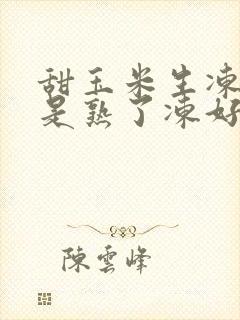 甜玉米生凍
是熟了凍好
陳雲峰